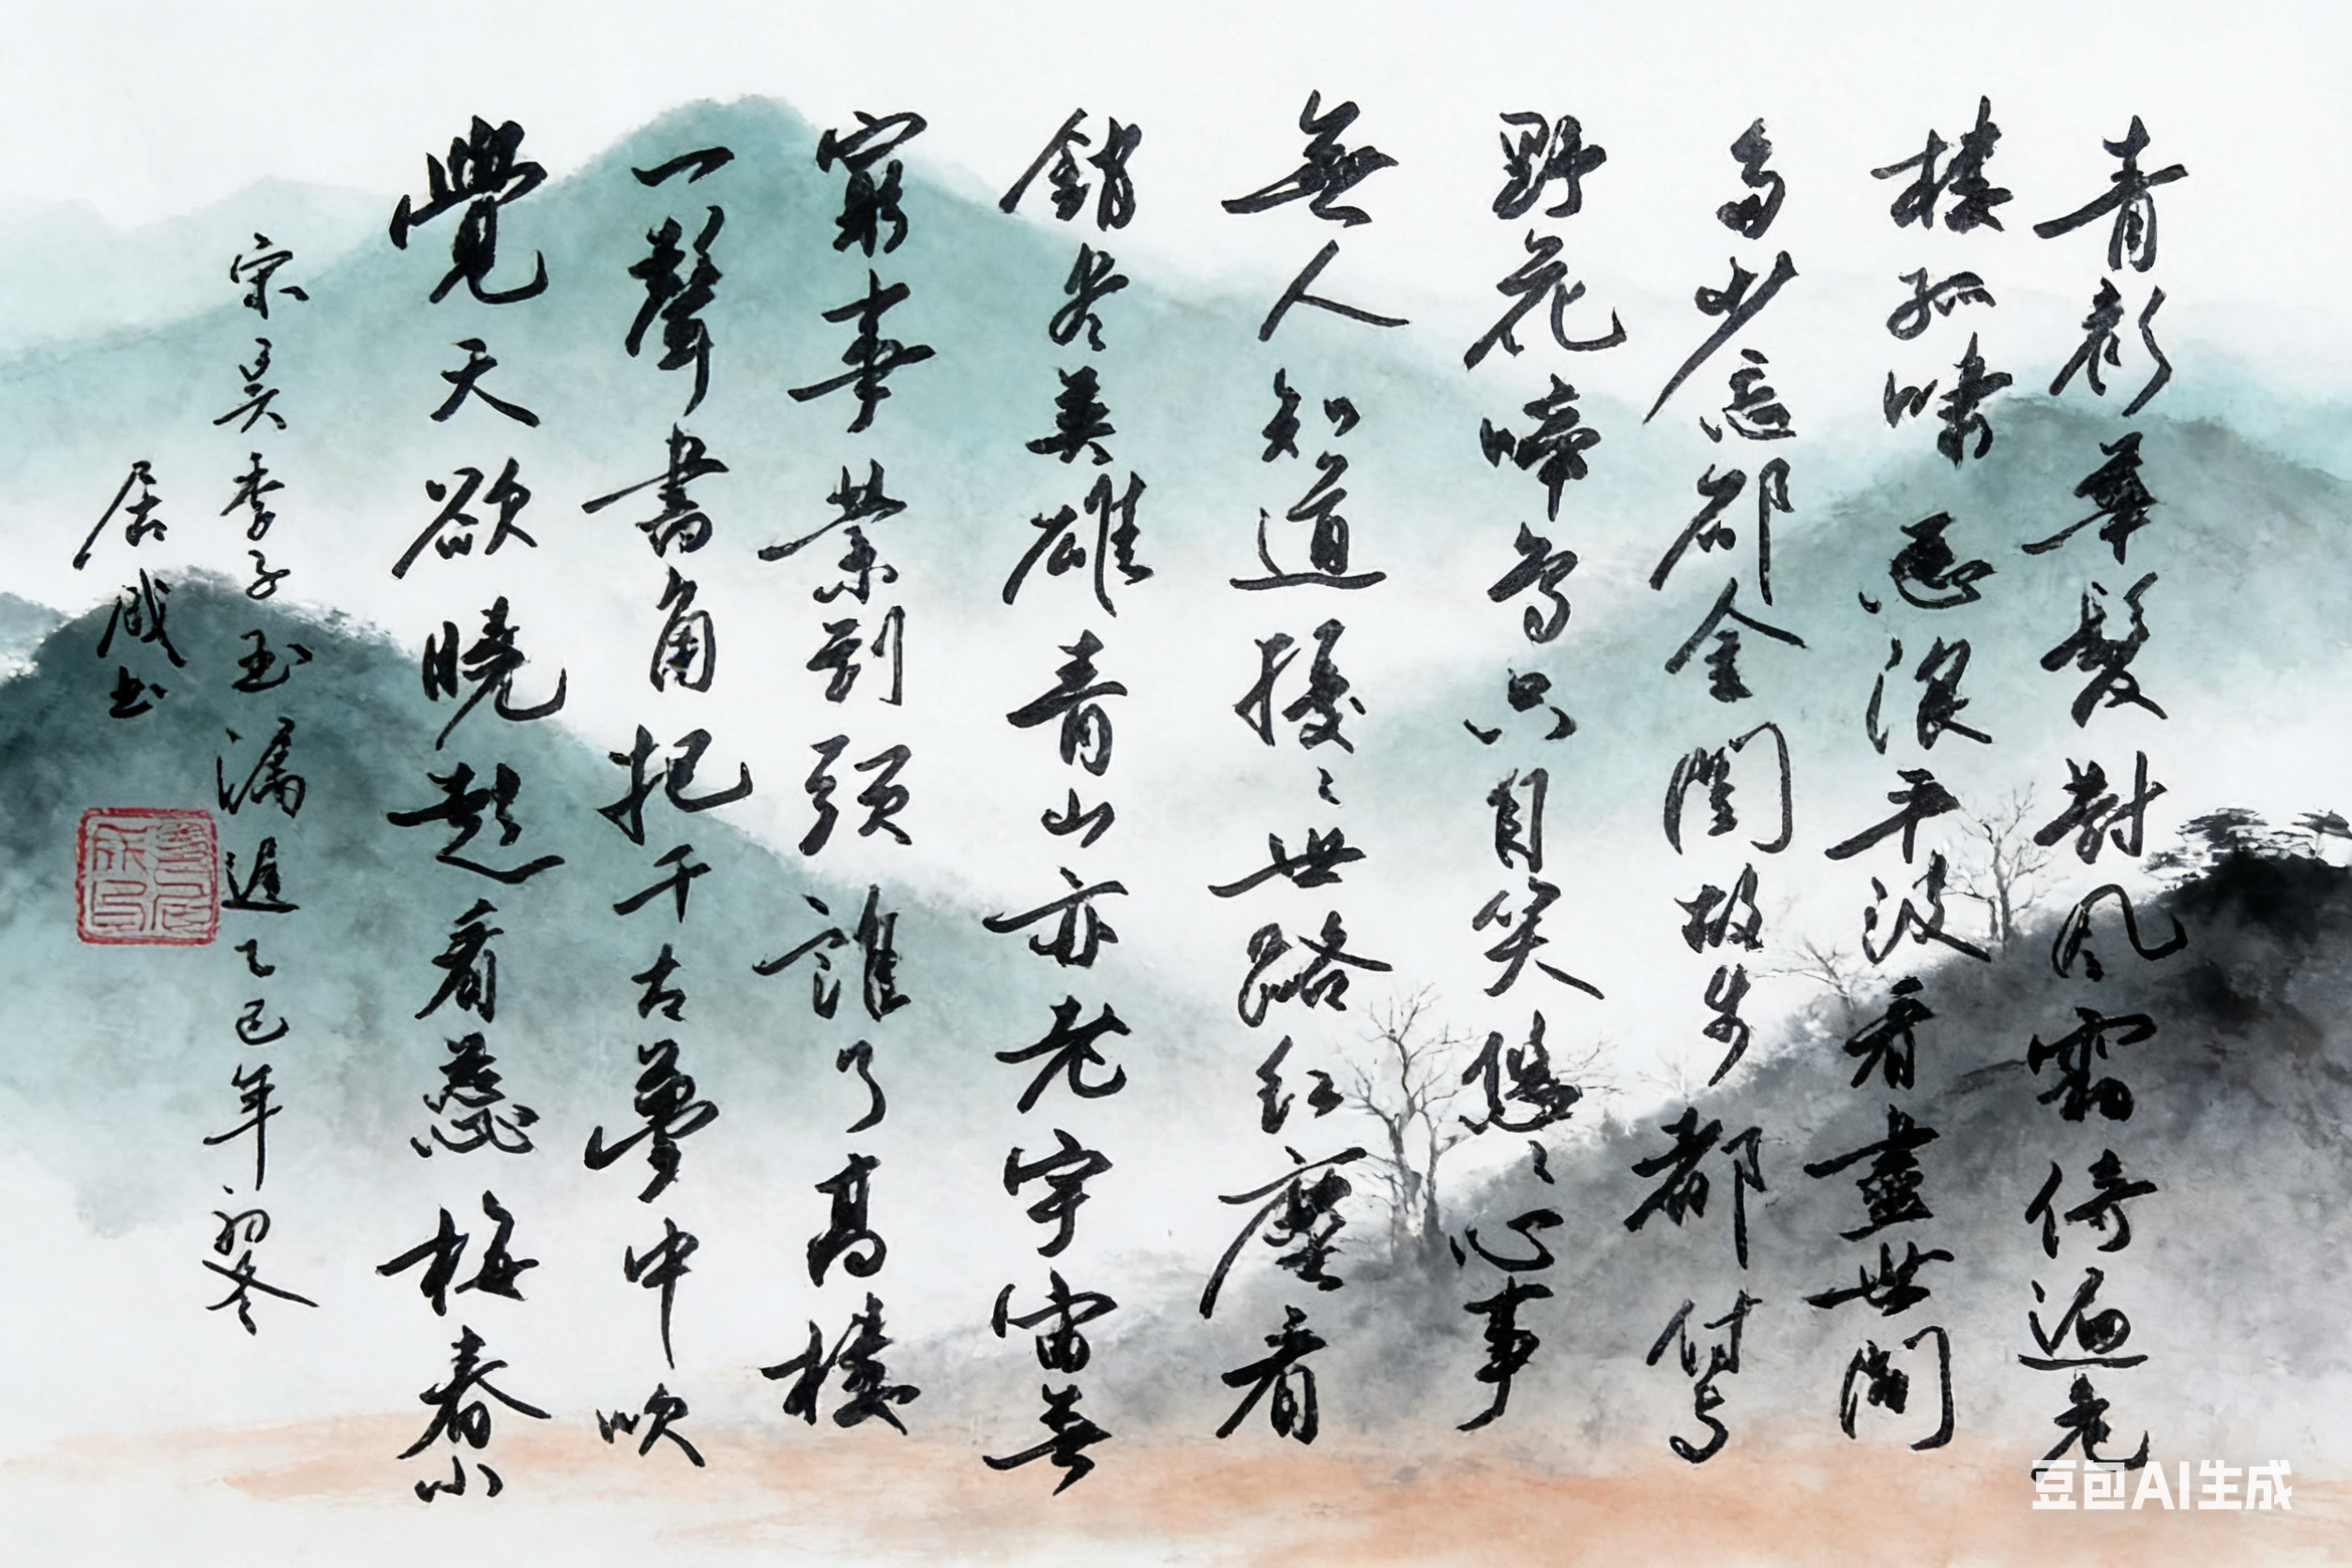 青衫華髮對風霜倚遍危
樓孤嘯惡浪平波看盡世間
多少忘卻金閨故步都付與
野花啼鳥只自笑悠〻心事
無人知道擾〻世路紅塵看
銷盡英雄青山亦老宇宙無
窮事業到頭誰了高樓
一聲畫角把千古夢中吹
覺天欲曉起看蕊梅春小
宋吳季子玉漏遲乙巳年初冬
居 书
豆包AI生成